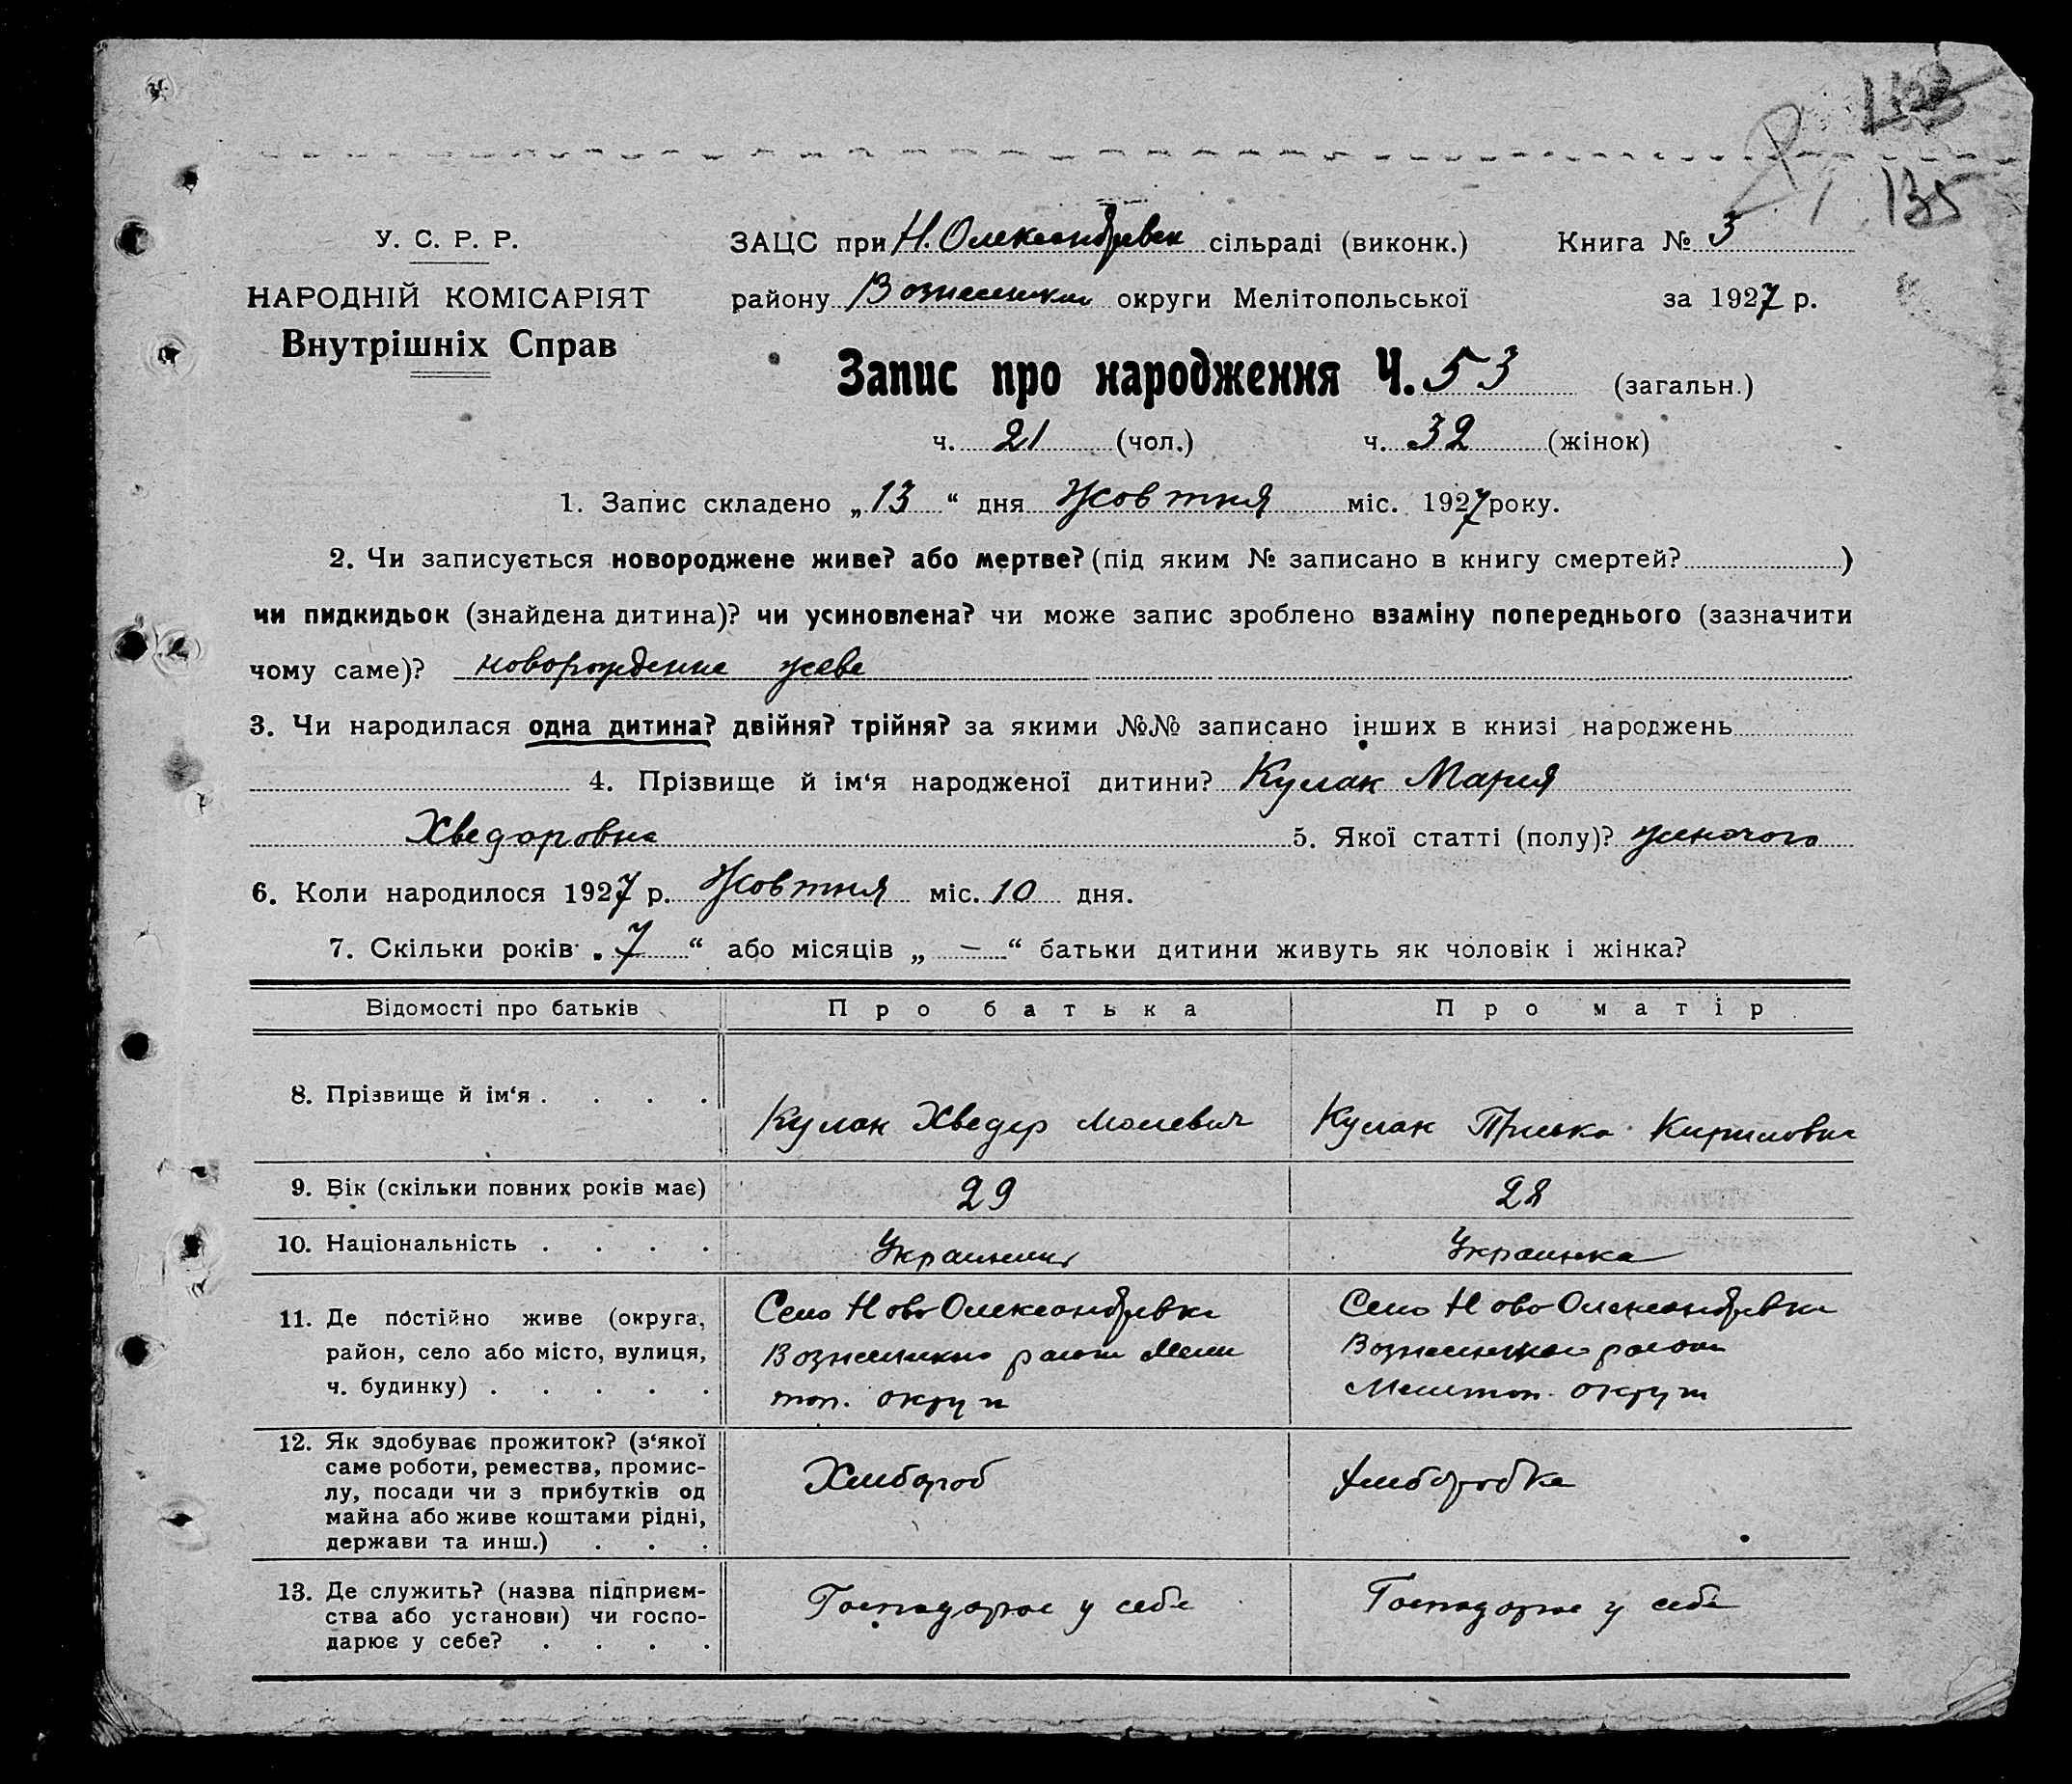 135
У. С. Р. Р.
НАРОДНІЙ КОМІСАРІЯТ
Внутрішніх Справ
ЗАЦС при Н. Олександрівск сільраді (виконк.) Книга № 3
району округи Мелітопольської за 1927 р.
Запис про народження Ч. 53 (загальн.)
ч. 21 (чол.) ч. 32 (жінок)
1. Запис складено „ 13 “ дня Жовтня міс. 1927 року.
2. Чи записується новороджене живе? або мертве? (під яким № записано в книгу смертей? )
чи пидкидьок (знайдена дитина)? чи усиновлена? чи може запис зроблено взаміну попереднього (зазначити
чому саме)? новорожденне живе
3. Чи народилася одна дитина? двійня? трійня? за якими №№ записано інших в книзі народжень
4. Прізвище й ім‘я народженої дитини? Кулак Мария
Хведоровна 5. Якої статті (полу)? жиночого
6. Коли народилося 1927 р. Жовтня міс. 10 дня.
7. Скільки років „ 7 “ або місяців „ — “ батьки дитини живуть як чоловік і жінка?
Відомості про батьків Про батька Про матір
8. Прізвище й ім‘я . . . . Кулак Хведер Кулак Приська Кирилովна
9. Вік (скільки повних років має) 29 28
10. Національність . . . . Украинец Украинка
11. Де постійно живе (округа, Село Ново Олександривка Село Ново Олександривка
район, село або місто, вулиця, району Мели району
ч. будинку) . . . . . топ. округи Мелитоп. округи
12. Як здобуває прожиток? (з‘якої
саме роботи, ремества, промис- Хлибороб Хлиборобка
лу, посади чи з прибутків од
майна або живе коштами рідні,
держави та инш.) . . .
13. Де служить? (назва підприєм- Господарює у себе Господарює у себе
ства або установи) чи госпо-
дарює у себе? . . . .